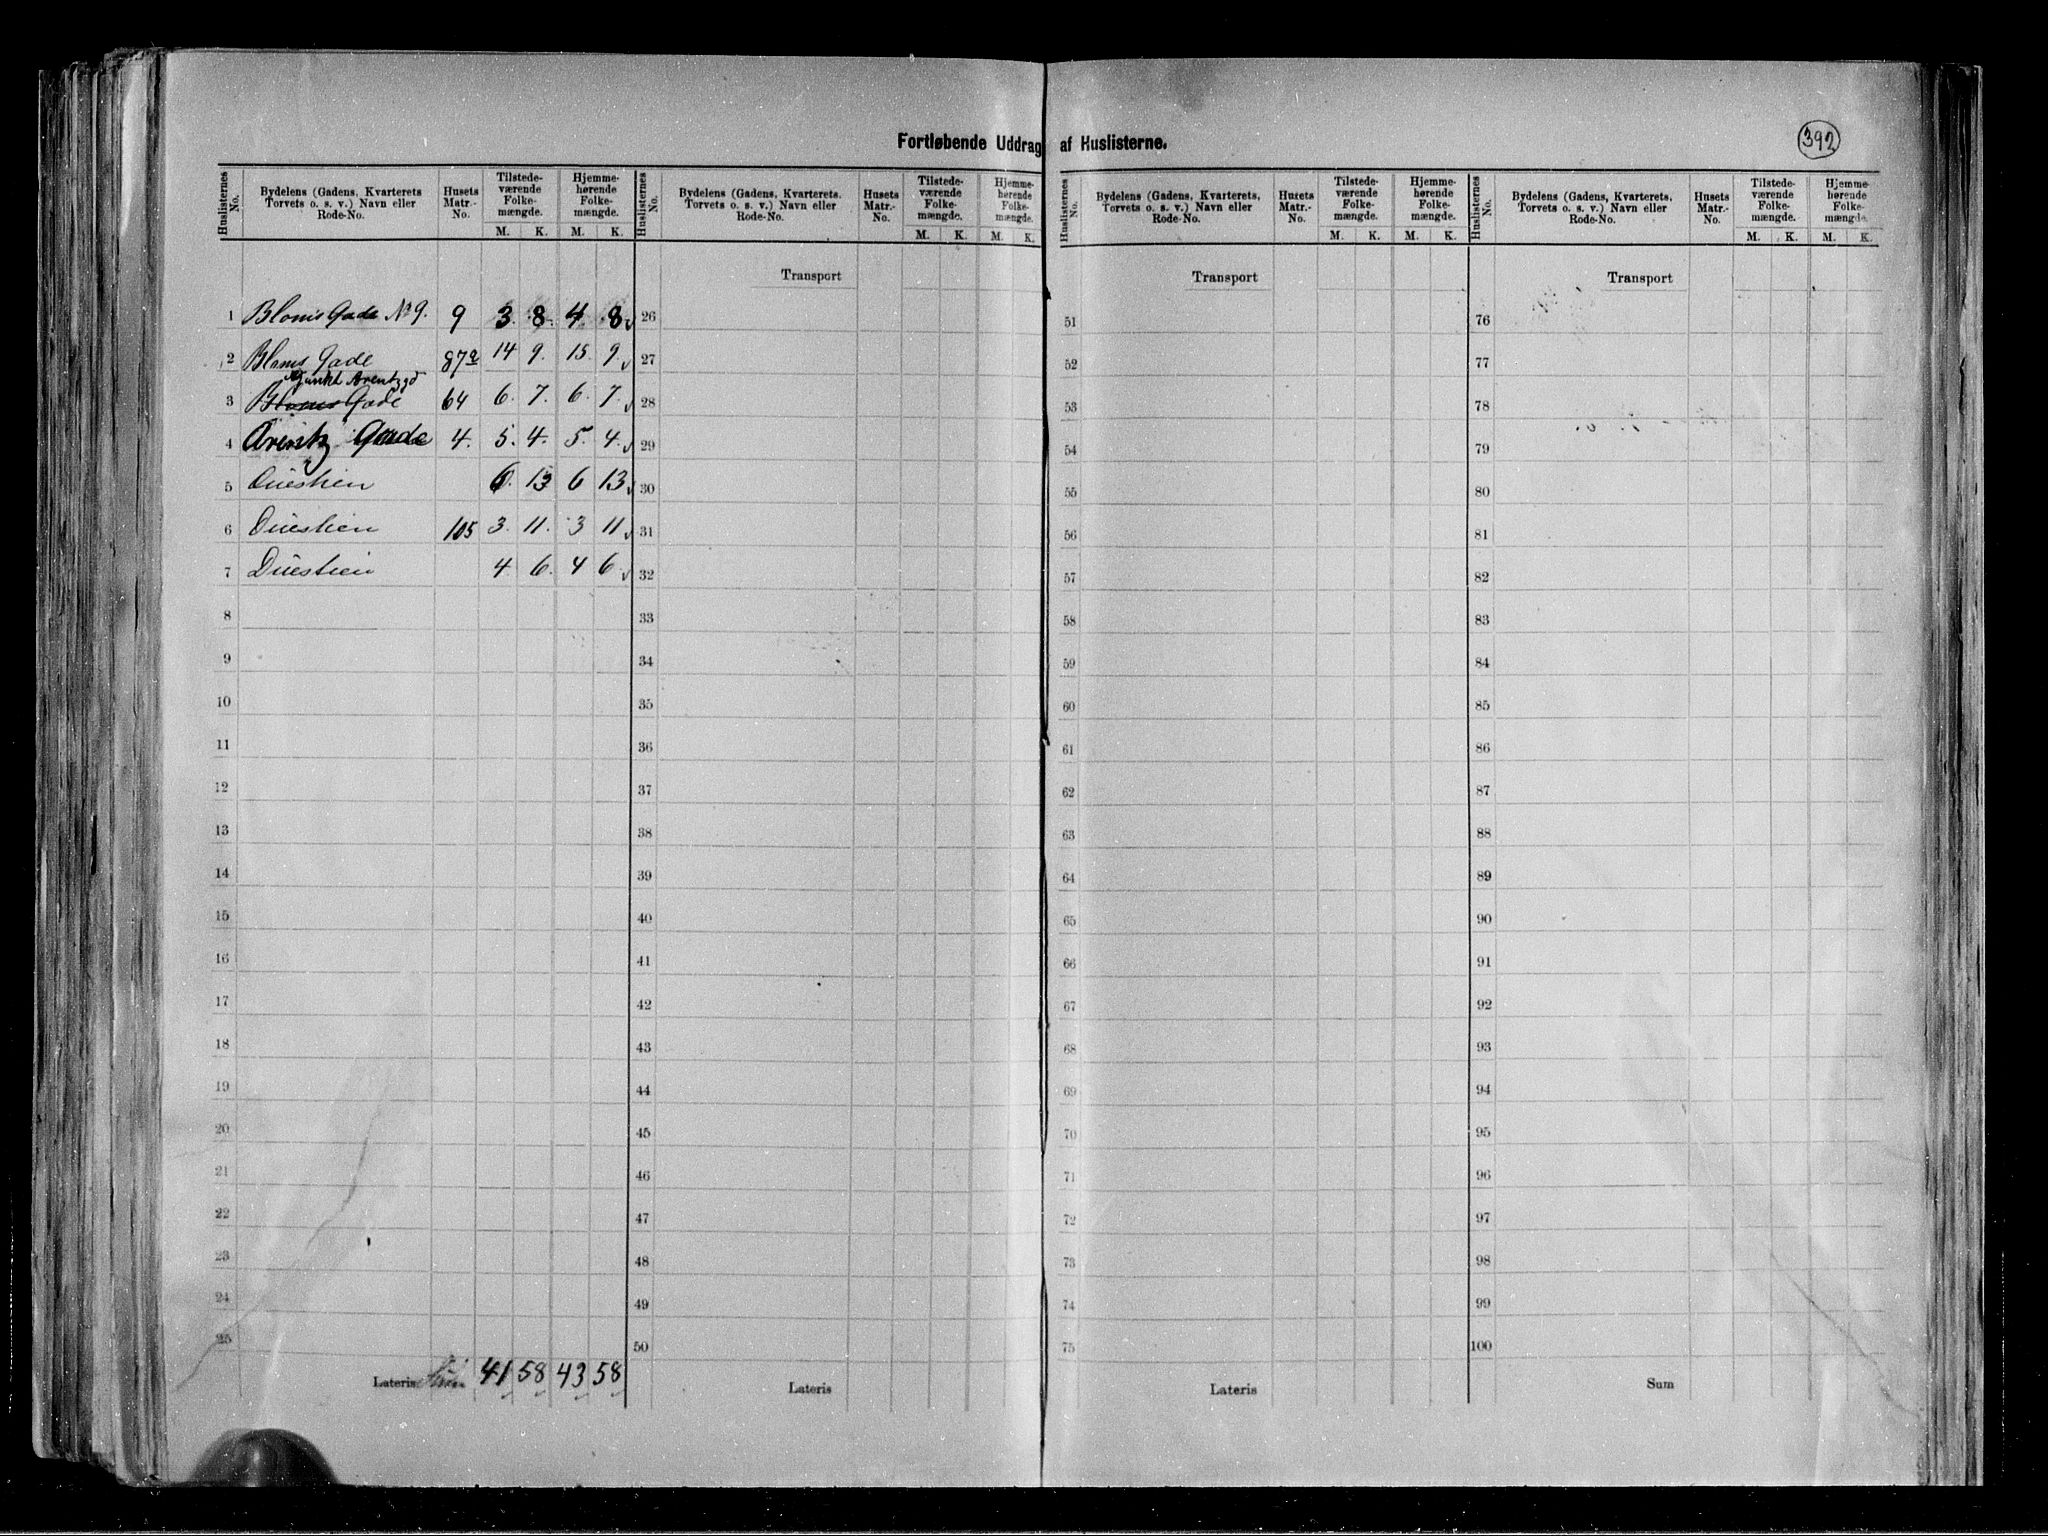 Fortløbende Uddrag af Huslisterne.
392
Huslisternes No.
Bydelens (Gadens, Kvarterets Torvets o. s. v.) Navn eller Rode-No.
Husets Matr.-No.
Tilstede-værende Folke-mængde.
Hjemme-hørende Folke-mængde.
M. K. M. K.
Huslisternes No.
Bydelens (Gadens, Kvarterets, Torvets o. s. v.) Navn eller Rode-No.
Husets Matr.-No.
Tilstede-værende Folke-mængde.
Hjemme-hørende Folke-mængde.
M. K. M. K.
Huslisternes No.
Bydelens (Gadens, Kvarterets, Torvets o. s. v.) Navn eller Rode-No.
Husets Matr.-No.
Tilstede-værende Folke-mængde.
Hjemme-hørende Folke-mængde.
M. K. M. K.
Huslisternes No.
Bydelens (Gadens, Kvarterets, Torvets o. s. v.) Navn eller Rode-No.
Husets Matr.-No.
Tilstede-værende Folke-mængde.
Hjemme-hørende Folke-mængde.
M. K. M. K.
Transport Transport Transport
1 Bloms Gade No 9. 9 3. 8. 4 8 26 51 76
2 Bloms Gade 87a 14 9. 15. 9. 27 52 77
Arentzgd
3 Bloms Gade 64 6. 7. 6. 7. 28 53 78
4 Arentz Gade 4. 5. 4. 5. 4. 29 54 79
5 Duestien 6. 13 6 13 30 55 80
6 Duestien 105 3. 11. 3 11 31 56 81
7 Duestien 4 6. 4 6. 32 57 82
8 33 58 83
9 34 59 84
10 35 60 85
11 36 61 86
12 37 62 87
13 38 63 88
14 39 64 89
15 40 65 90
16 41 66 91
17 42 67 92
18 43 68 93
19 44 69 94
20 45 70 95
21 46 71 96
22 47 72 97
23 48 73 98
24 49 74 99
25 50 75 100
Lateris 41 58 43 58 Lateris Lateris Sum